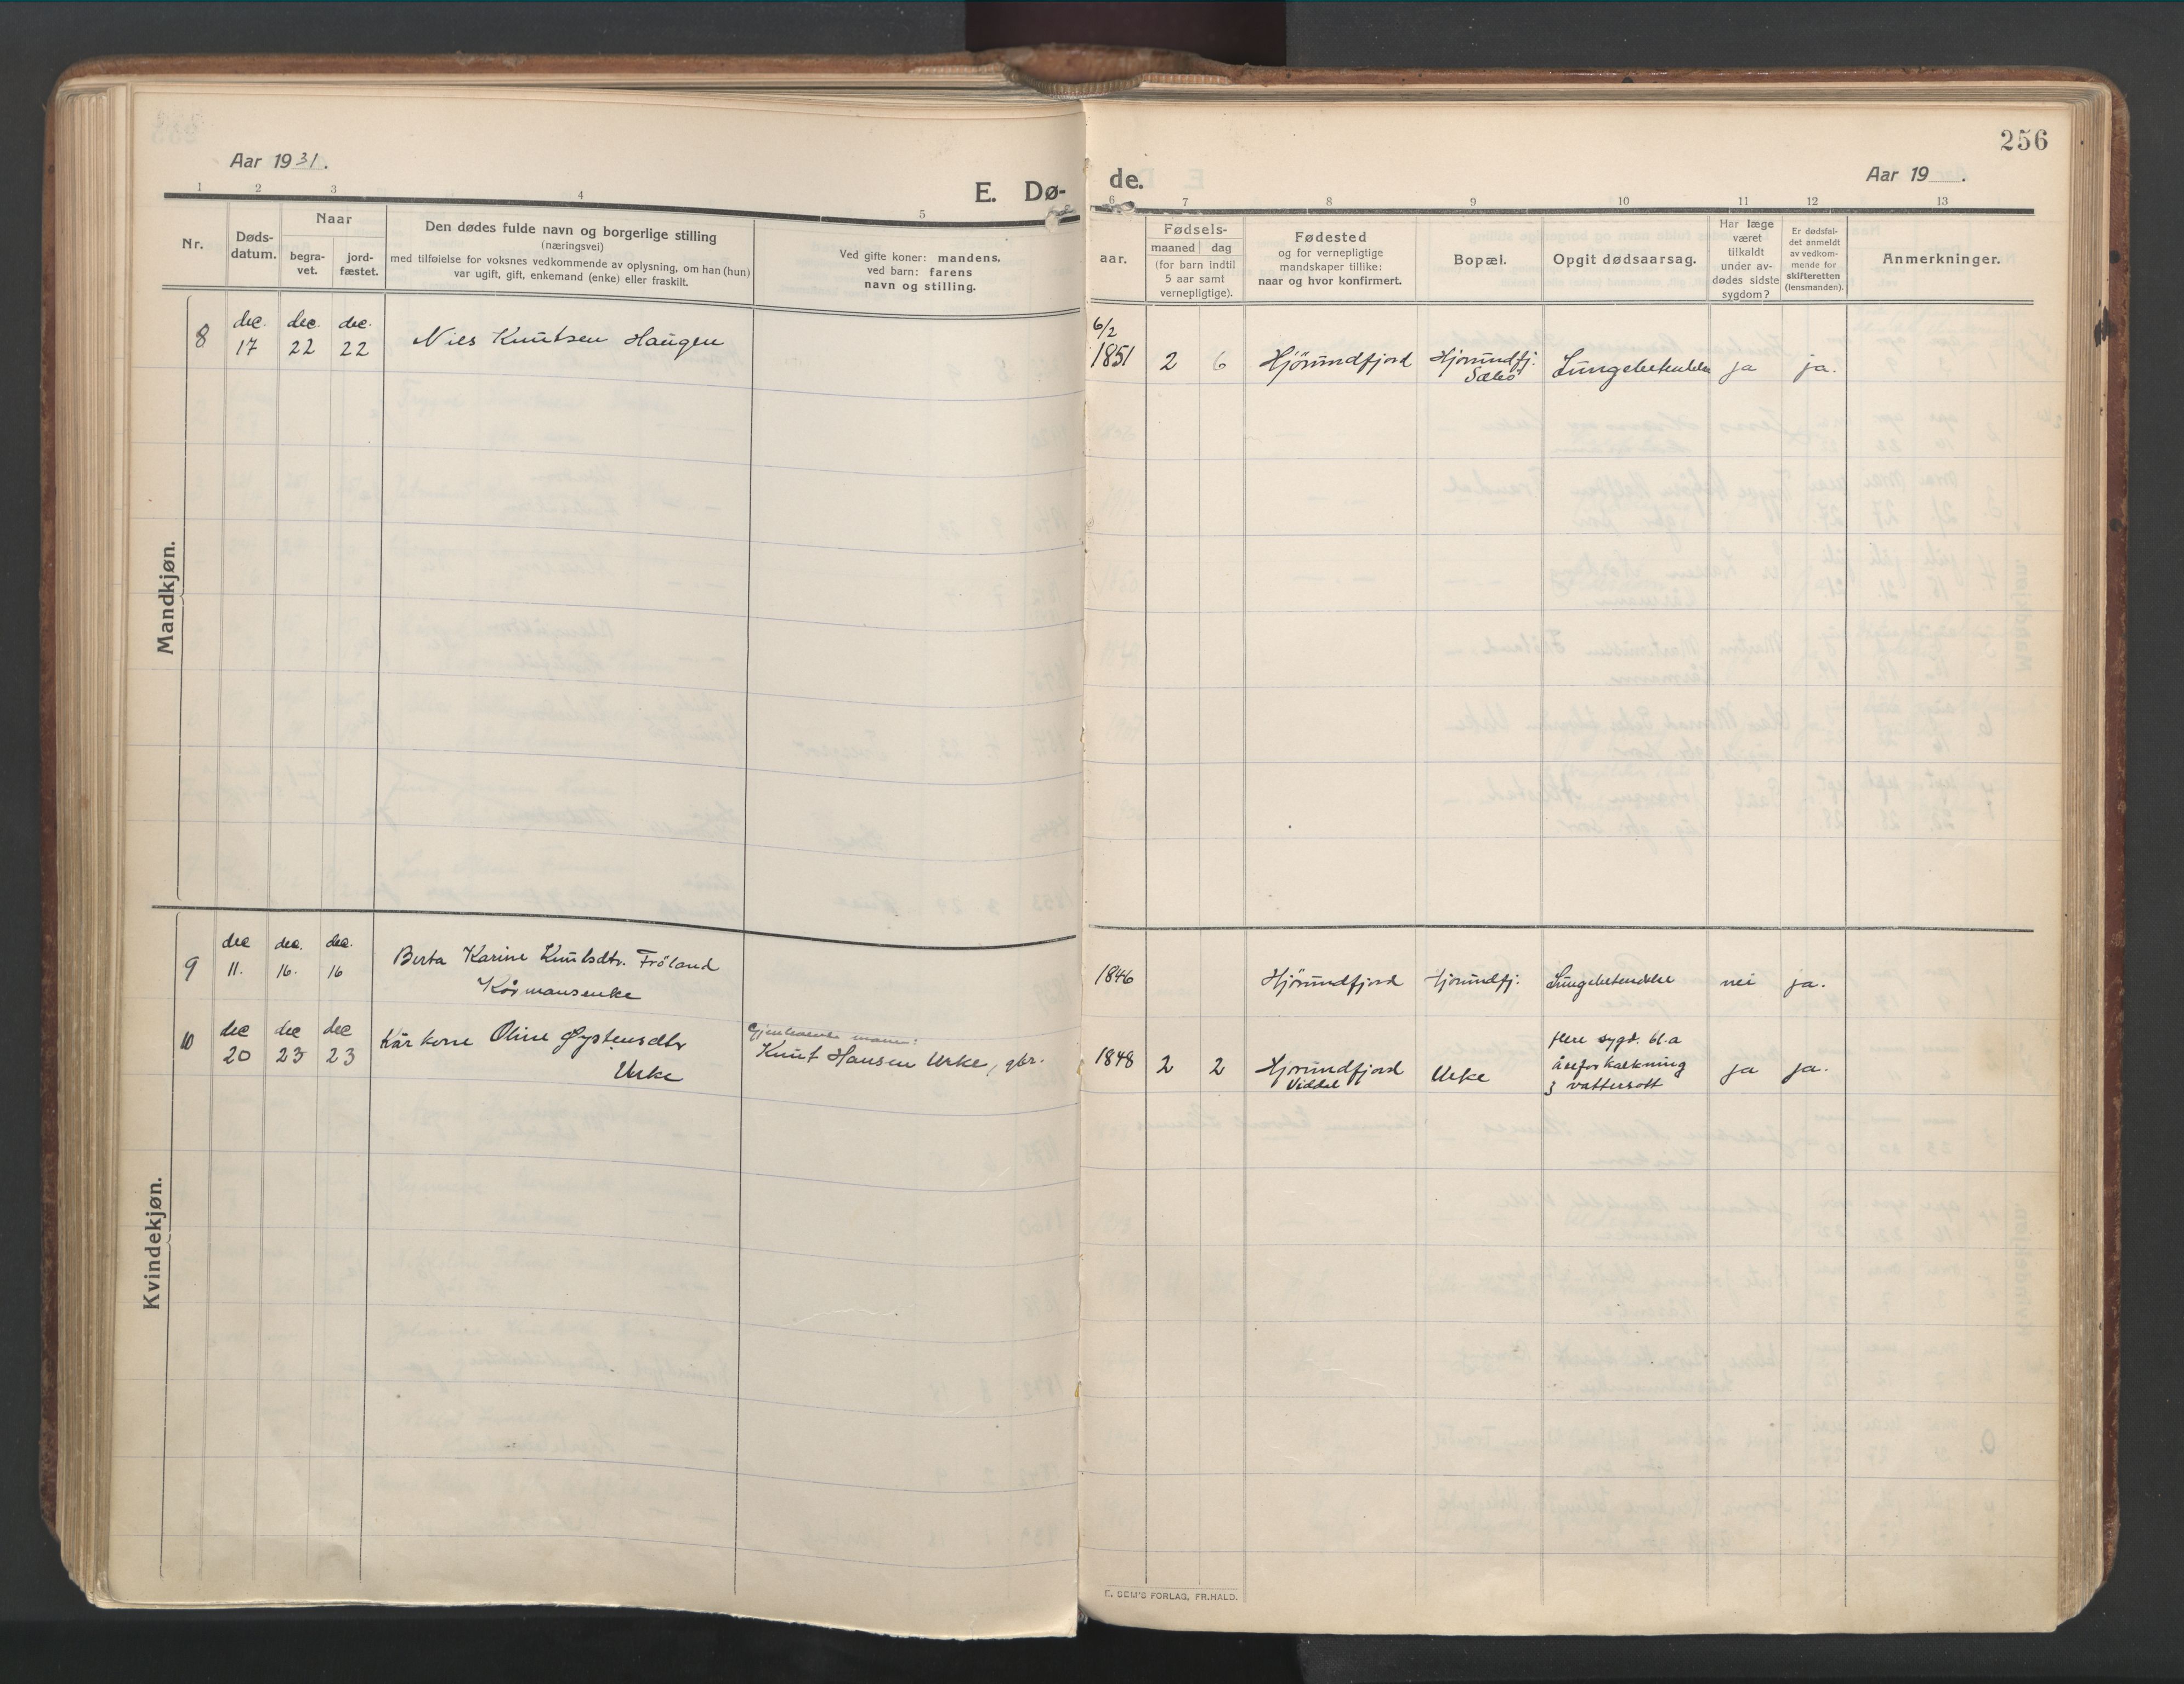 Aar 1931.
E. Dø-
1 2 3 4 5
Nr.
Døds-
datum.
Naar
begra-
vet.
jord-
fæstet.
Den dødes fulde navn og borgerlige stilling
(næringsvei)
med tilføielse for voksnes vedkommende av oplysning, om han (hun)
var ugift, gift, enkemand (enke) eller fraskilt.
Ved gifte koner: mandens,
ved barn: farens
navn og stilling.
Mandkjøn.
dec. dec. dec.
8 17 22 22 Nils Knutsen Haugen
Kvindekjøn.
dec dec. dec.
9 11. 16. 16 Berta Karine Knutsdtr. Fröland
Kårmansenke
dec dec dec
10 20 23 23 Kårkone Oline Øystensdtr
Urke
Gjenlevende mann:
Knut Hansen Urke, gbr.
256
de.
Aar 19 .
6 7 8 9 10 11 12 13
aar.
Fødsels-
maaned dag
(for barn indtil
5 aar samt
vernepligtige).
Fødested
og for vernepligtige
mandskaper tillike:
naar og hvor konfirmert.
Bopæl.
Opgit dødsaarsag.
Har læge
været
tilkaldt
under av-
dødes sidste
sygdom?
Er dødsfal-
det anmeldt
av vedkom-
mende for
skifteretten
(lensmanden).
Anmerkninger.
6/2
1851 2 6 Hjörundfjord Hjorundfj. Lungebetendelse ja ja.
Sæbö
1846 Hjörundfjord Hjorundfj. Lungebetendelse nei ja.
1848 2 2 Hjorundfjord
Viddal
Urke
flere sygd. bl.a
åreforkalkning
& vattersott
ja ja.
E. SEM'S FORLAG, FR.HALD.